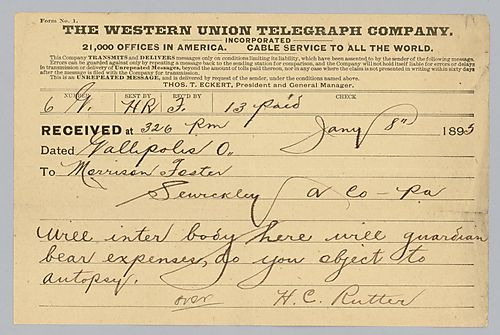 Form No. 1.
THE WESTERN UNION TELEGRAPH COMPANY.
INCORPORATED
21,000 OFFICES IN AMERICA. CABLE SERVICE TO ALL THE WORLD.
This Company TRANSMITS and DELIVERS messages only on conditions limiting its liability, which have been assented to by the sender of the following message.
Errors can be guarded against only by repeating a message back to the sending station for comparison, and the Company will not hold itself liable for errors or delays
in transmission or delivery of Unrepeated Messages, beyond the amount of tolls paid thereon, nor in any case where the claim is not presented in writing within sixty days
after the message is filed with the Company for transmission.
This is an UNREPEATED MESSAGE, and is delivered by request of the sender, under the conditions named above.
THOS. T. ECKERT, President and General Manager.
NUMBER SENT BY REC'D BY CHECK
6 HR 13 paid
RECEIVED at 326 Pm Jany 8" 1895
Dated Gallipolis O..
To Morrison Foster
Sewickley a Co - Pa
Will inter body here will guardian
bear expenses, do you object to
autopsy.
over H. C. Rutter